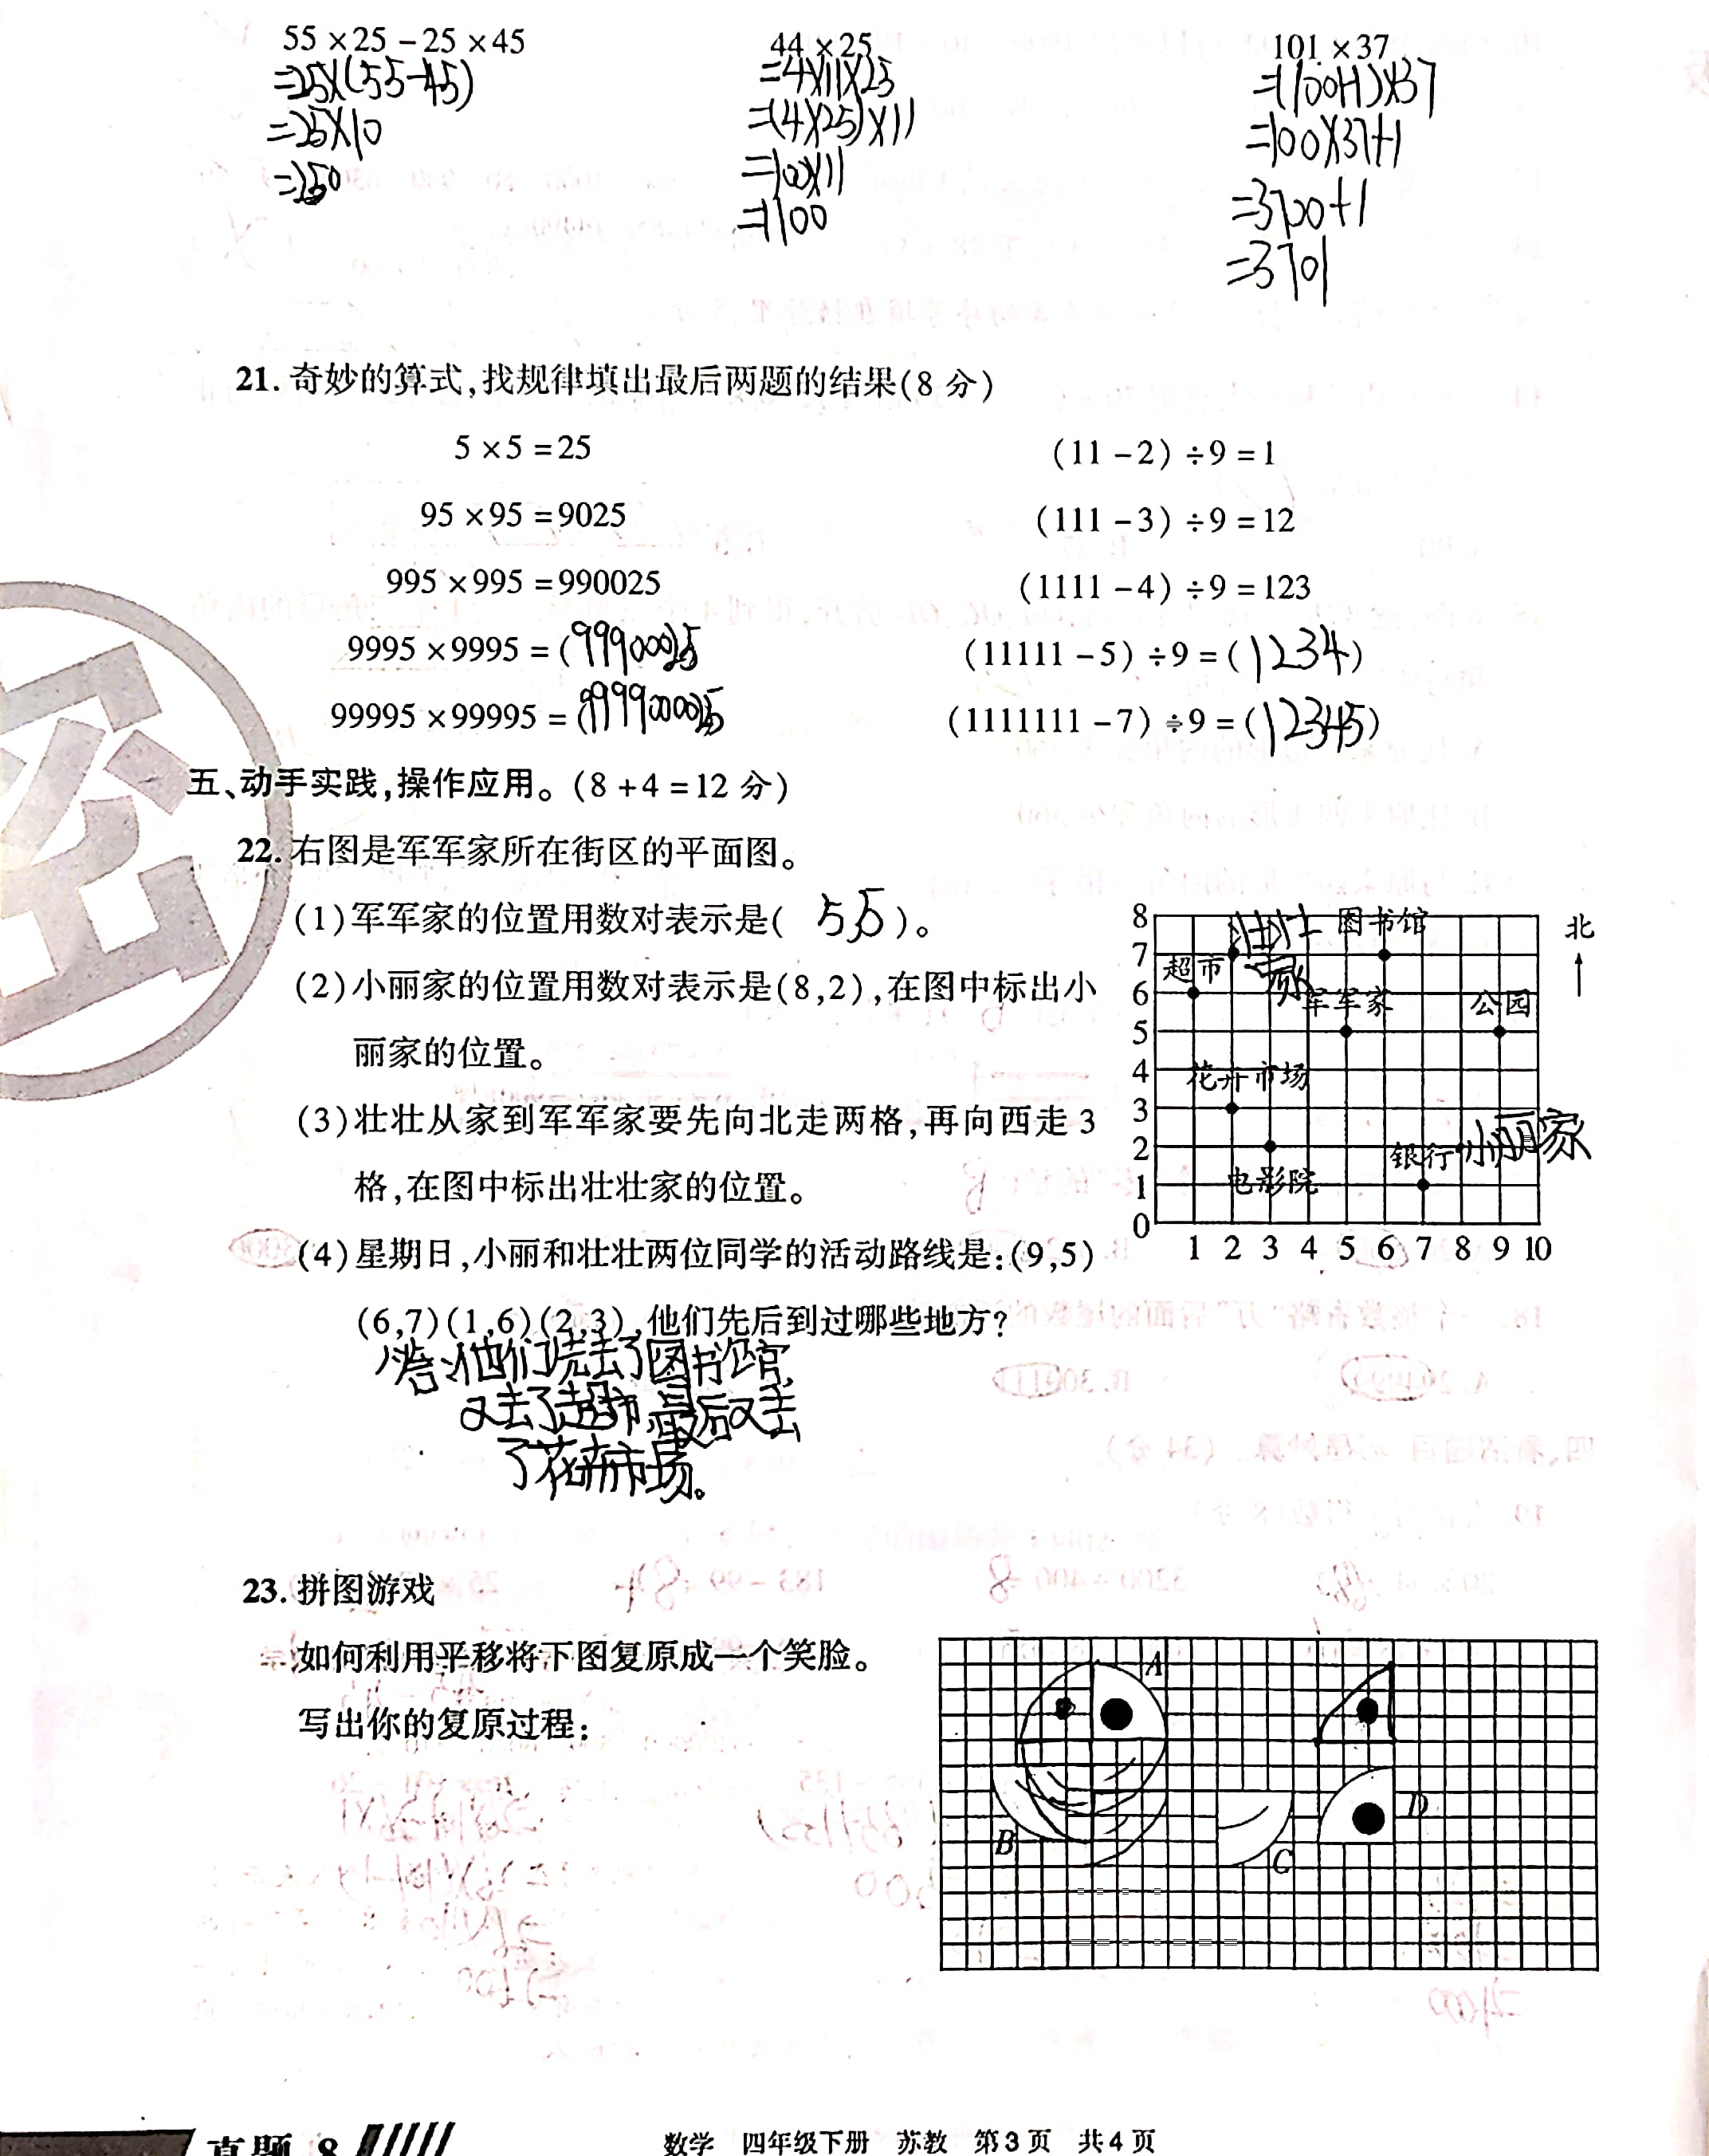 55 × 25 － 25 × 45
=25×(55-45)
=25×10
=250
44 × 25
=4×11×25
=(4×25)×11
=100×11
=1100
101 × 37
=(100+1)×37
=100×37+1
=3700+1
=3701
21. 奇妙的算式,找规律填出最后两题的结果(8 分)
5 × 5 = 25
(11 － 2) ÷ 9 = 1
95 × 95 = 9025
(111 － 3) ÷ 9 = 12
995 × 995 = 990025
(1111 － 4) ÷ 9 = 123
9995 × 9995 = (99900025
(11111 － 5) ÷ 9 = (1234)
99995 × 99995 = (9999000025
(1111111 － 7) ÷ 9 = (12345)
密
五、动手实践,操作应用。(8 + 4 = 12 分)
22. 右图是军军家所在街区的平面图。
(1)军军家的位置用数对表示是( 5,5 )。
(2)小丽家的位置用数对表示是(8,2),在图中标出小
丽家的位置。
(3)壮壮从家到军军家要先向北走两格,再向西走 3
格,在图中标出壮壮家的位置。
(4)星期日,小丽和壮壮两位同学的活动路线是:(9,5)
(6,7)(1,6)(2,3),他们先后到过哪些地方?
答:他们先去了图书馆,
又去了超市,最后又去
了花卉市场。
8
7
6
5
4
3
2
1
0
1 2 3 4 5 6 7 8 9 10
北
壮壮家
图书馆
超市
军军家
公园
花卉市场
小丽家
银行
电影院
23. 拼图游戏
如何利用平移将下图复原成一个笑脸。
写出你的复原过程:
A
B
C
D
真题 8
数学 四年级下册 苏教 第 3 页 共 4 页